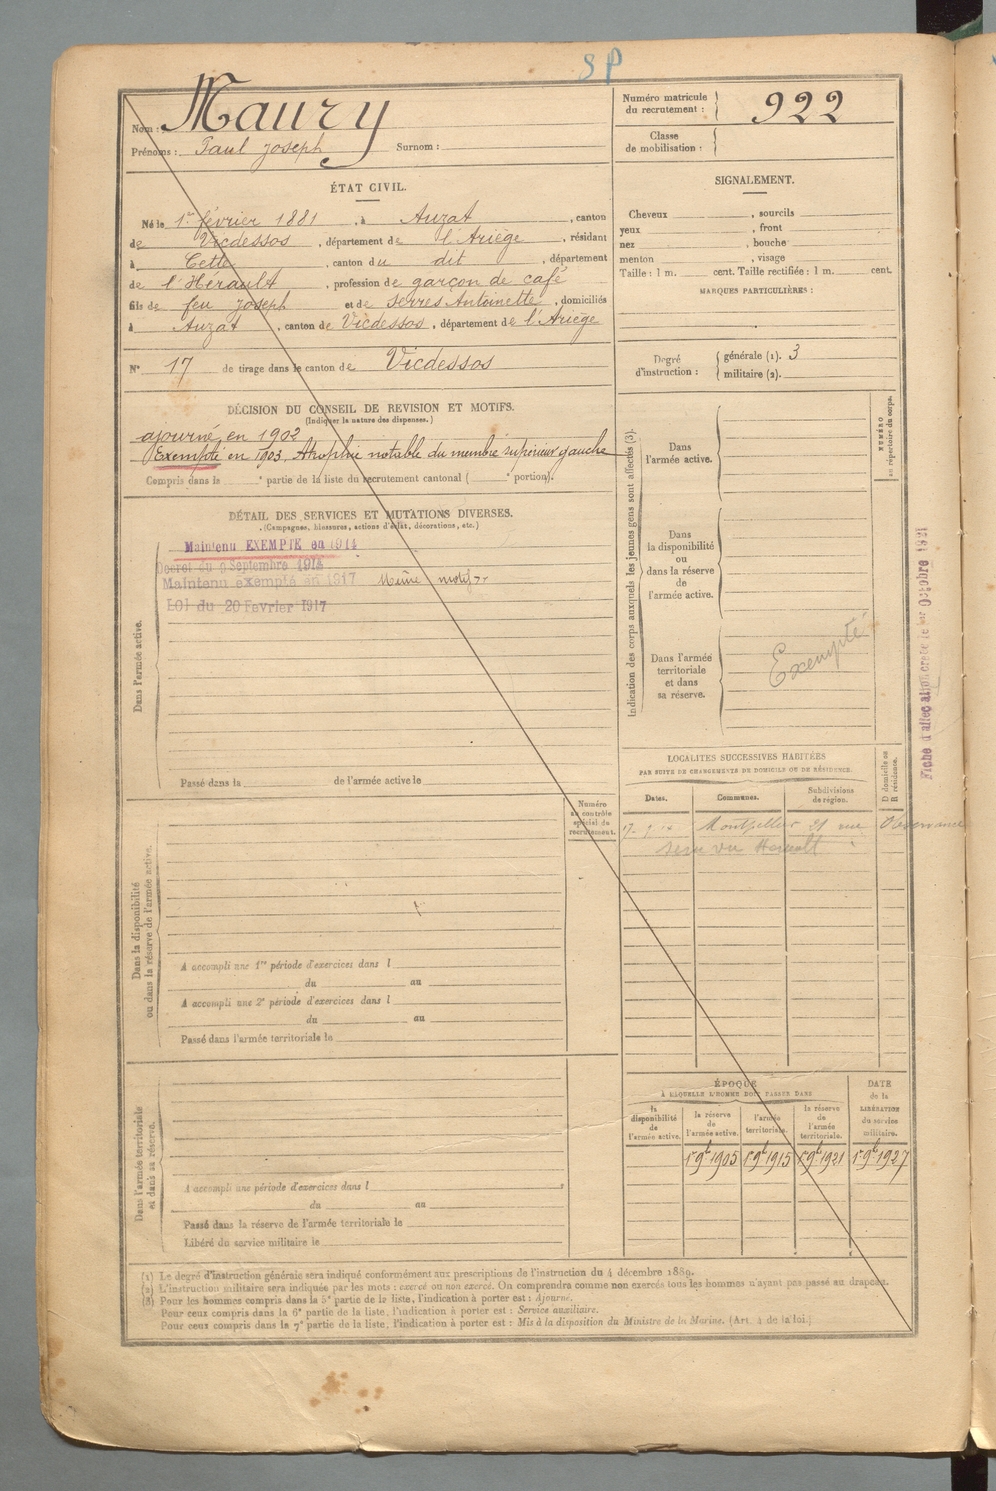 SP
Nom : Maury
Prénoms : Paul Joseph Surnom :
Numéro matricule du recrutement : 922
Classe de mobilisation :
ÉTAT CIVIL.
Né le 1er février 1881, à Auzat, canton
de Vicdessos, département de l'Ariège, résidant
à Cette, canton du dit, département
de l'Hérault, profession de garçon de café
fils de feu Joseph et de Serres Antoinette, domiciliés
à Auzat, canton de Vicdessos, département de l'Ariège
N° 17 de tirage dans le canton de Vicdessos
DÉCISION DU CONSEIL DE REVISION ET MOTIFS.
(Indiquer la nature des dispenses.)
ajourné en 1902
Exempté en 1903. Atrophie notable du membre supérieur gauche
Compris dans la e partie de la liste du recrutement cantonal ( e portion).
DÉTAIL DES SERVICES ET MUTATIONS DIVERSES.
(Campagnes, blessures, actions d'éclat, décorations, etc.)
Dans l'armée active.
Maintenu EXEMPTE en 1914
Décret du 9 Septembre 1914
Maintenu exempté en 1917 Même motif
LOI du 20 Février 1917
Passé dans la de l'armée active le
Numéro au contrôle spécial de recrutement.
Dans la disponibilité ou dans la réserve de l'armée active.
A accompli une 1re période d'exercices dans l
du au
A accompli une 2e période d'exercices dans l
du au
Passé dans l'armée territoriale le
Dans l'armée territoriale et dans sa réserve.
A accompli une période d'exercices dans l
du au
Passé dans la réserve de l'armée territoriale le
Libéré du service militaire le
SIGNALEMENT.
Cheveux , sourcils
yeux , front
nez , bouche
menton , visage
Taille : 1 m. cent. Taille rectifiée : 1 m. cent.
MARQUES PARTICULIÈRES :
Degré d'instruction : générale (1). 3
militaire (2).
Indication des corps auxquels les jeunes gens sont affectés (3).
NUMÉRO au répertoire du corps.
Dans
l'armée active.
Dans
la disponibilité
ou
dans la réserve
de
l'armée active.
Dans l'armée
territoriale
et dans
sa réserve.
Exempté
Fiche d'affec 1er Octobre 1921
LOCALITÉS SUCCESSIVES HABITÉES
PAR SUITE DE CHANGEMENTS DE DOMICILE OU DE RÉSIDENCE.
Dates. Communes. Subdivisions de région. D domicile ou R résidence.
Montpellier 21 rue Observance
Hérault
ÉPOQUE
À LAQUELLE L'HOMME DOIT PASSER DANS
la disponibilité de l'armée active. la réserve de l'armée active. l'armée territoriale. la réserve de l'armée territoriale.
DATE de la LIBÉRATION du service militaire.
1er 9bre 1905 1er 9bre 1915 1er 9bre 1921 1er 9bre 1927
(1) Le degré d'instruction générale sera indiqué conformément aux prescriptions de l'instruction du 4 décembre 1889.
(2) L'instruction militaire sera indiquée par les mots : exercé ou non exercé. On comprendra comme non exercés tous les hommes n'ayant pas passé au drapeau.
(3) Pour les hommes compris dans la 5e partie de la liste, l'indication à porter est : Ajourné.
Pour ceux compris dans la 6e partie de la liste, l'indication à porter est : Service auxiliaire.
Pour ceux compris dans la 7e partie de la liste, l'indication à porter est : Mis à la disposition du Ministre de la Marine. (Art. 4 de la loi.)